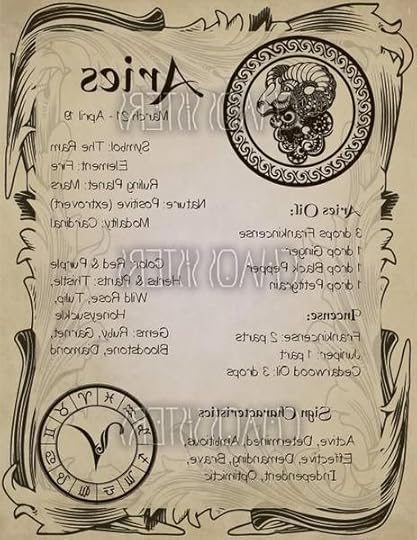 Aries
March 21 - April 19
Symbol: The Ram
Element: Fire
Ruling Planet: Mars
Nature: Positive (extrovert)
Modality: Cardinal
Color: Red & Purple
Herbs & Plants: Thistle,
Wild Rose, Tulip,
Honeysuckle
Gems: Ruby, Garnet,
Bloodstone, Diamond
Aries Oil:
3 drops Frankincense
1 drop Ginger
1 drop Black Pepper
1 drop Petitgrain
Incense:
Frankincense: 2 parts
Juniper: 1 part
Cedarwood Oil: 3 drops
Sign Characteristics
Active, Determined, Ambitious,
Effective, Demanding, Brave,
Independent, Optimictic